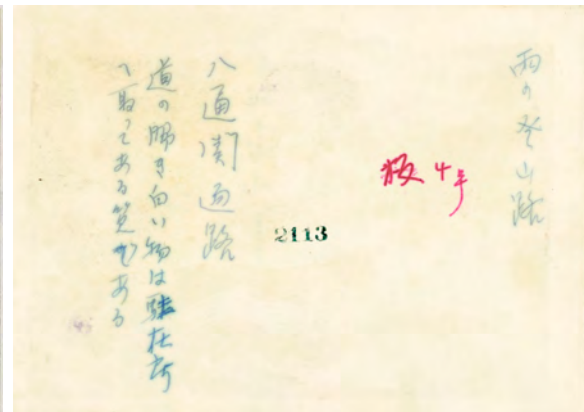 雨の登山路
板4号
2113
八通関道路
道の脇き白い物は駐在所
へ取つてある筧である